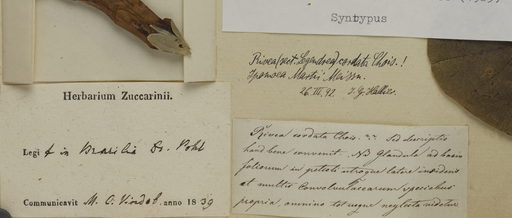 Syntypus
Rivea (sect. Legendrea) cordata Chois. !
Ipomoea Martii Meissn.
26.III.92. H. Hallier.
Herbarium Zuccarinii.
Legit in Brasilia Dr. Pohl
Communicavit M. C. Vindob. anno 1839
Rivea cordata Chois. ?? Sed descriptio
haud bene convenit. NB Glandula ad basin
foliorum in petioli utroque latere insidens
et multis Convolvulacearum speciebus
propria, omnino torque neglecta videtur